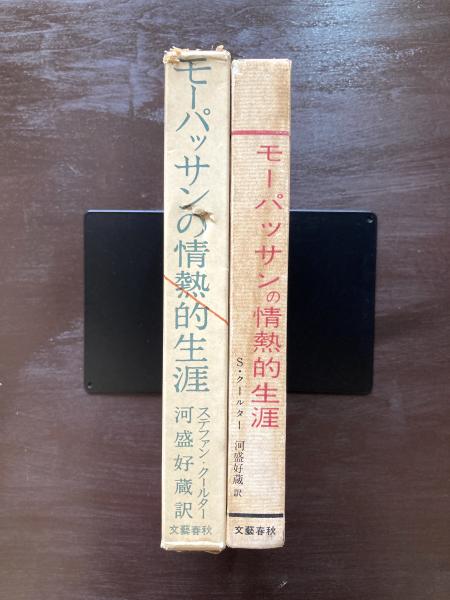 モーパッサンの情熱的生涯
ステファン・クールター
河盛好蔵訳
文藝春秋
モーパッサンの情熱的生涯
S・クールター
河盛好蔵訳
文藝春秋